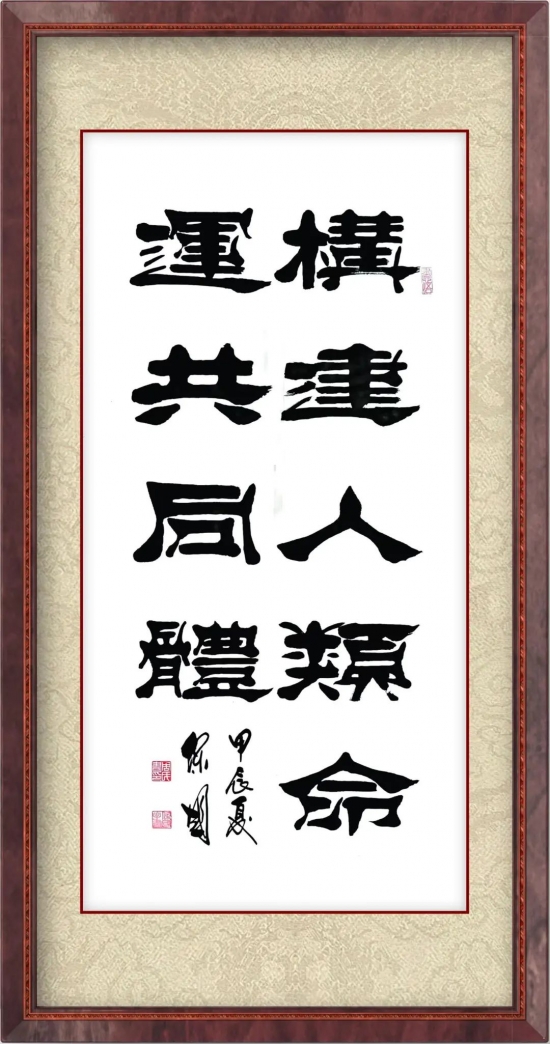 構建人類命
運共同體
甲辰夏